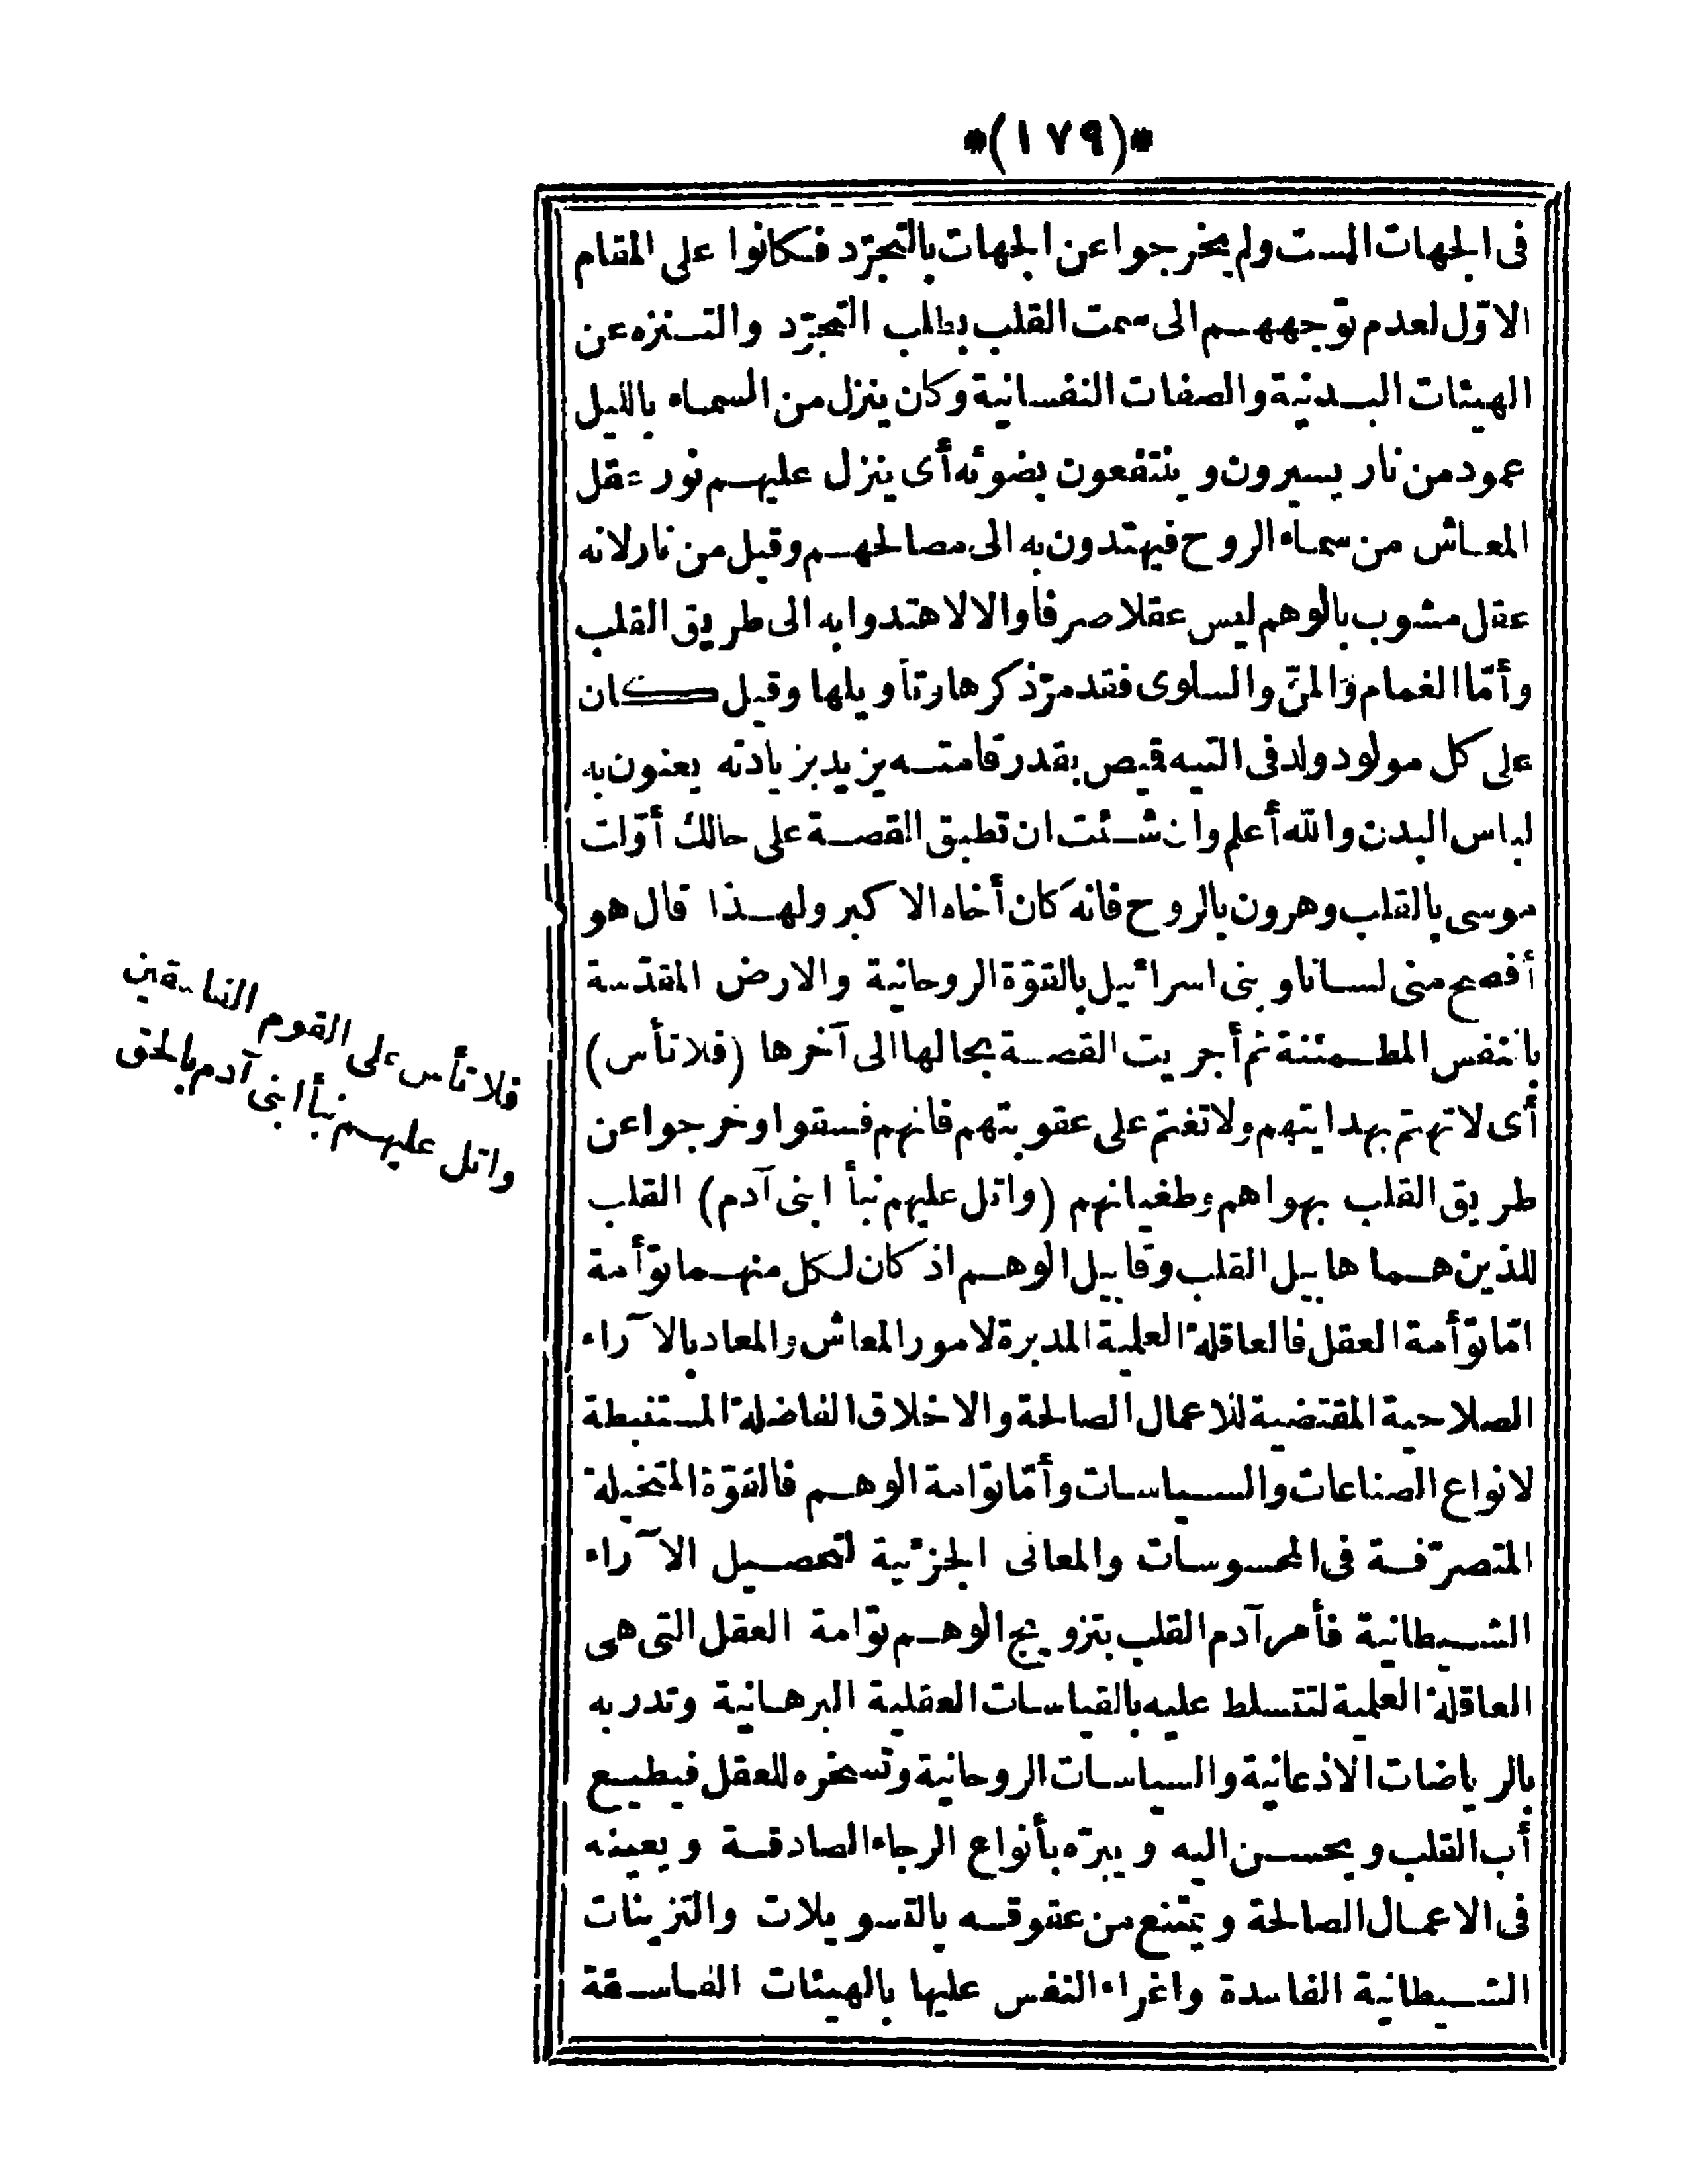 *(١٧٩)*
فى الجهات الست ولم يخرجوا عن الجهات بالتجرّد فكانوا على المقام
الاوّل لعدم توجههم الى سمت القلب بطلب التجرّد والتنزه عن
الهيئات البدنية والصفات النفسانية وكان ينزل من السماء بالليل
عمود من نار يسيرون وينتفعون بضوئه أى ينزل عليهم نور عقل
المعاش من سماء الروح فيهتدون به الى مصالحهم وقيل من نار لانه
عقل مشوب بالوهم ليس عقلا صرفا والا لاهتدوا به الى طريق القلب
وأمّا الغمام والمنّ والسلوى فقد مرّ ذكرها وتأويلها وقيل كان
على كل مولود ولد فى التيه قميص بقدر قامته يزيد بزيادته يعنون به
لباس البدن والله أعلم وان شئت ان تطبق القصة على حالك أوّلت
موسى بالقلب وهرون بالروح فانه كان أخاه الاكبر ولهذا قال هو
أفصح منى لسانا وبنى اسرائيل بالقوّة الروحانية والارض المقدّسة
بالنفس المطمئنة ثم أجريت القصة بحالها الى آخرها (فلا تأس)
أى لا تهتم بهدايتهم ولا تغتم على عقوبتهم فانهم فسقوا وخرجوا عن
طريق القلب بهواهم وطغيانهم (واتل عليهم نبأ ابنى آدم) القلب
للذين هما هابيل القلب وقابيل الوهم اذ كان لكل منهما توّأمة
امّا توّأمة العقل فالعاقلة العلمية المدبرة لامور المعاش والمعاد بالآراء
الصلاحية المقتضية للاعمال الصالحة والاخلاق الفاضلة المستنبطة
لانواع الصناعات والسياسات وأمّا توّامة الوهم فالقوّة المتخيلة
المتصرّفة فى المحسوسات والمعانى الجزئية لتحصيل الآراء
الشيطانية فأمر آدم القلب بتزويج الوهم توّامة العقل التى هى
العاقلة العلمية لتتسلط عليه بالقياسات العقلية البرهانية وتدربه
بالرياضات الاذعانية والسياسات الروحانية وتسخره للعقل فيطيع
أب القلب ويحسن اليه ويبرّه بأنواع الرجاء الصادقة ويعينه
فى الاعمال الصالحة ويمتنع من عقوقه بالتسويلات والتزينات
الشيطانية الفاسدة واغراء النفس عليها بالهيئات الفاسقة
فلا تأس على القوم الفاسقين
واتل عليهم نبأ ابنى آدم بالحق